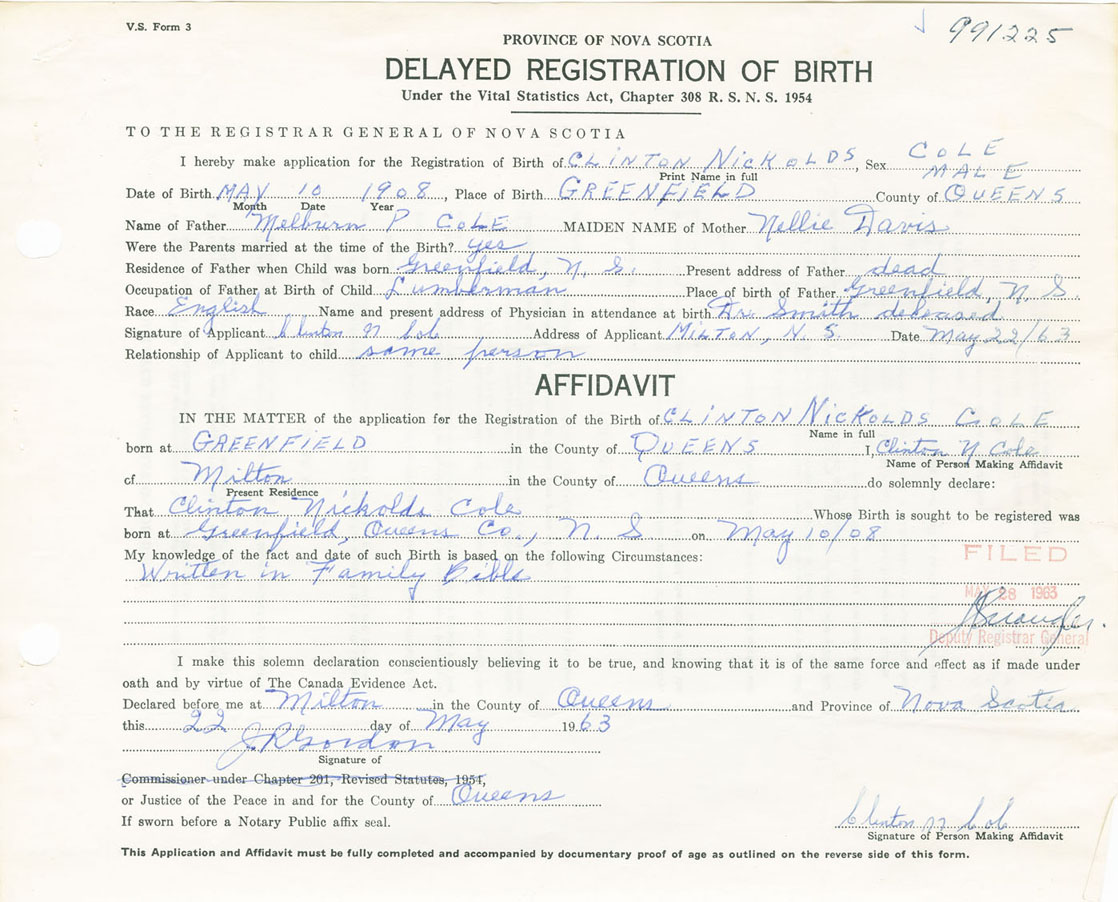 V.S. Form 3
991225
PROVINCE OF NOVA SCOTIA
DELAYED REGISTRATION OF BIRTH
Under the Vital Statistics Act, Chapter 308 R. S. N. S. 1954
TO THE REGISTRAR GENERAL OF NOVA SCOTIA
COLE
I hereby make application for the Registration of Birth of CLINTON NICKOLDS, Sex MALE
Print Name in full
Date of Birth MAY 10 1908, Place of Birth GREENFIELD County of QUEENS
Month Date Year
Name of Father Melburn P COLE MAIDEN NAME of Mother Nellie Davis
Were the Parents married at the time of the Birth? yes
Residence of Father when Child was born Greenfield, N. S. Present address of Father dead
Occupation of Father at Birth of Child Lumberman Place of birth of Father Greenfield, N S
Race English Name and present address of Physician in attendance at birth Dr. Smith deceased
Signature of Applicant Clinton N Cole Address of Applicant MILTON, N. S. Date May 22/63
Relationship of Applicant to child same person
AFFIDAVIT
IN THE MATTER of the application for the Registration of the Birth of CLINTON NICKOLDS COLE
Name in full
born at GREENFIELD in the County of QUEENS I, Clinton N Cole
Name of Person Making Affidavit
of Milton in the County of Queens do solemnly declare:
Present Residence
That Clinton Nickolds Cole Whose Birth is sought to be registered was
born at Greenfield, Queens Co., N. S on May 10/08
My knowledge of the fact and date of such Birth is based on the following Circumstances:
Written in Family Bible
FILED
MAY 28 1963
Deputy Registrar General
I make this solemn declaration conscientiously believing it to be true, and knowing that it is of the same force and effect as if made under
oath and by virtue of The Canada Evidence Act.
Declared before me at Milton in the County of Queens and Province of Nova Scotia
this 22 day of May 1963
J R Gordon
Signature of
Commissioner under Chapter 201, Revised Statutes, 1954,
or Justice of the Peace in and for the County of Queens
If sworn before a Notary Public affix seal.
Clinton N Cole
Signature of Person Making Affidavit
This Application and Affidavit must be fully completed and accompanied by documentary proof of age as outlined on the reverse side of this form.